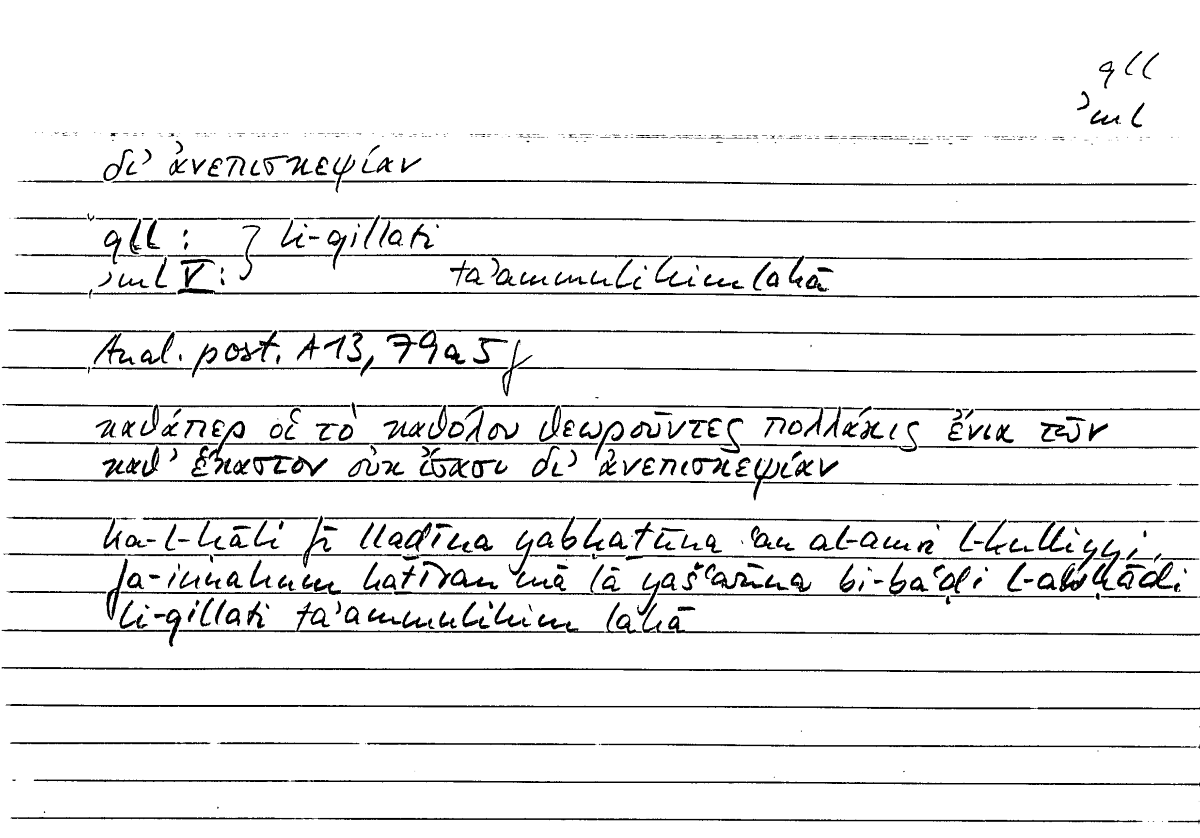 qll
ʾml
δι’ ἀνεπισκεψίαν
qll : } li-qillati
ʾml V : taʾammulihim lahā
Anal. post. A13, 79a5f
καθάπερ οἱ τὸ καθόλου θεωροῦντες πολλάκις ἔνια τῶν
καθ’ ἕκαστον οὐκ ἴσασι δι’ ἀνεπισκεψίαν
ka-l-ḥāli fī lladīna yabḥaṯūna ʿan al-amri l-kulliyyi,
fa-innahum kaṯīran mā lā yašʿurūna bi-baʿḍi l-ašḫāṣi
li-qillati taʾammulihim lahā